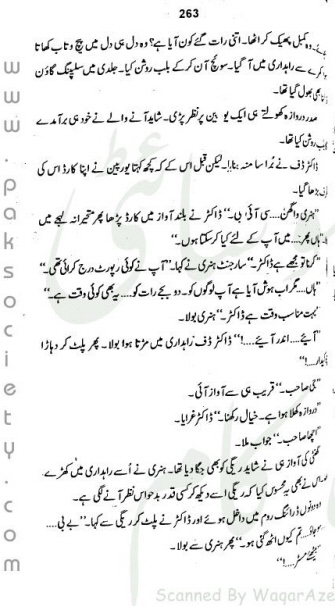 263
وہ کمبل پھینک کر اٹھا۔ اتنی رات گئے کون آیا ہے؟ وہ دل ہی دل میں پیچ و تاب کھاتا
سے راہداری میں آ گیا۔ سوئچ آن کر کے بلب روشن کیا۔ جلدی میں سلیپنگ گاؤن
بھی بھول گیا تھا۔
صدر دروازہ کھولتے ہی ایک یورپین پر نظر پڑی۔ شاید آنے والے نے خود ہی برآمدے
روشن کیا تھا۔
ڈاکٹر ڈف نے بُرا سا منہ بنایا۔ لیکن قبل اس کے کہ کچھ کہتا یورپین نے اپنا کارڈ اس کی
بڑھا گیا۔
"ہنری واٹکن.... سی آئی بی۔" ڈاکٹر نے بلند آواز میں کارڈ پڑھا پھر متحیرانہ لہجے میں
ہاں پھر.... میں آپ کے لئے کیا کر سکتا ہوں۔"
"کہنا تو مجھے ہے ڈاکٹر۔" سارجنٹ ہنری نے کہا۔ "آپ نے کوئی رپورٹ درج کرائی تھی۔"
"ہاں.... مگر اب ہوش آیا ہے آپ لوگوں کو۔ دو بجے رات کو.... یہ بھی کوئی وقت ہے۔"
"بہت مناسب وقت ہے ڈاکٹر۔" ہنری بولا۔
"آیئے.... اندر آیئے....!" ڈاکٹر ڈف راہداری میں مڑتا ہوا بولا۔ پھر پلٹ کر دہاڑا
....!"
"جی صاحب۔" قریب ہی سے آواز آئی۔
"دروازہ کھلا ہوا ہے۔ خیال رکھنا۔" ڈاکٹر غرایا۔
"اچھا صاحب۔" جواب ملا۔
گھنٹی کی آواز ہی نے شاید ریگی کو بھی جگا دیا تھا۔ ہنری نے اُسے راہداری میں کھڑے
نے بھی یہ محسوس کیا کہ ریگی اسے دیکھ کر کسی قدر بدحواس نظر آنے لگی ہے۔
دونوں ڈرائنگ روم میں داخل ہوئے اور ڈاکٹر نے پلٹ کر ریگی سے کہا۔ "بے بی....
سو جاؤ.... تم کیوں اٹھ گئی ہو۔" پھر ہنری سے بولا۔
مسٹر....!"
www.paksociety.com
Scanned By WaqarAze